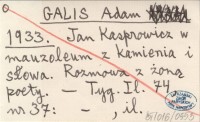 GALIS Adam
1933. Jan Kasprowicz w
mauzoleum z kamienia i
słowa. Rozmowa z żoną
poety. — Tyg. Il. 74
nr 37: — , il.